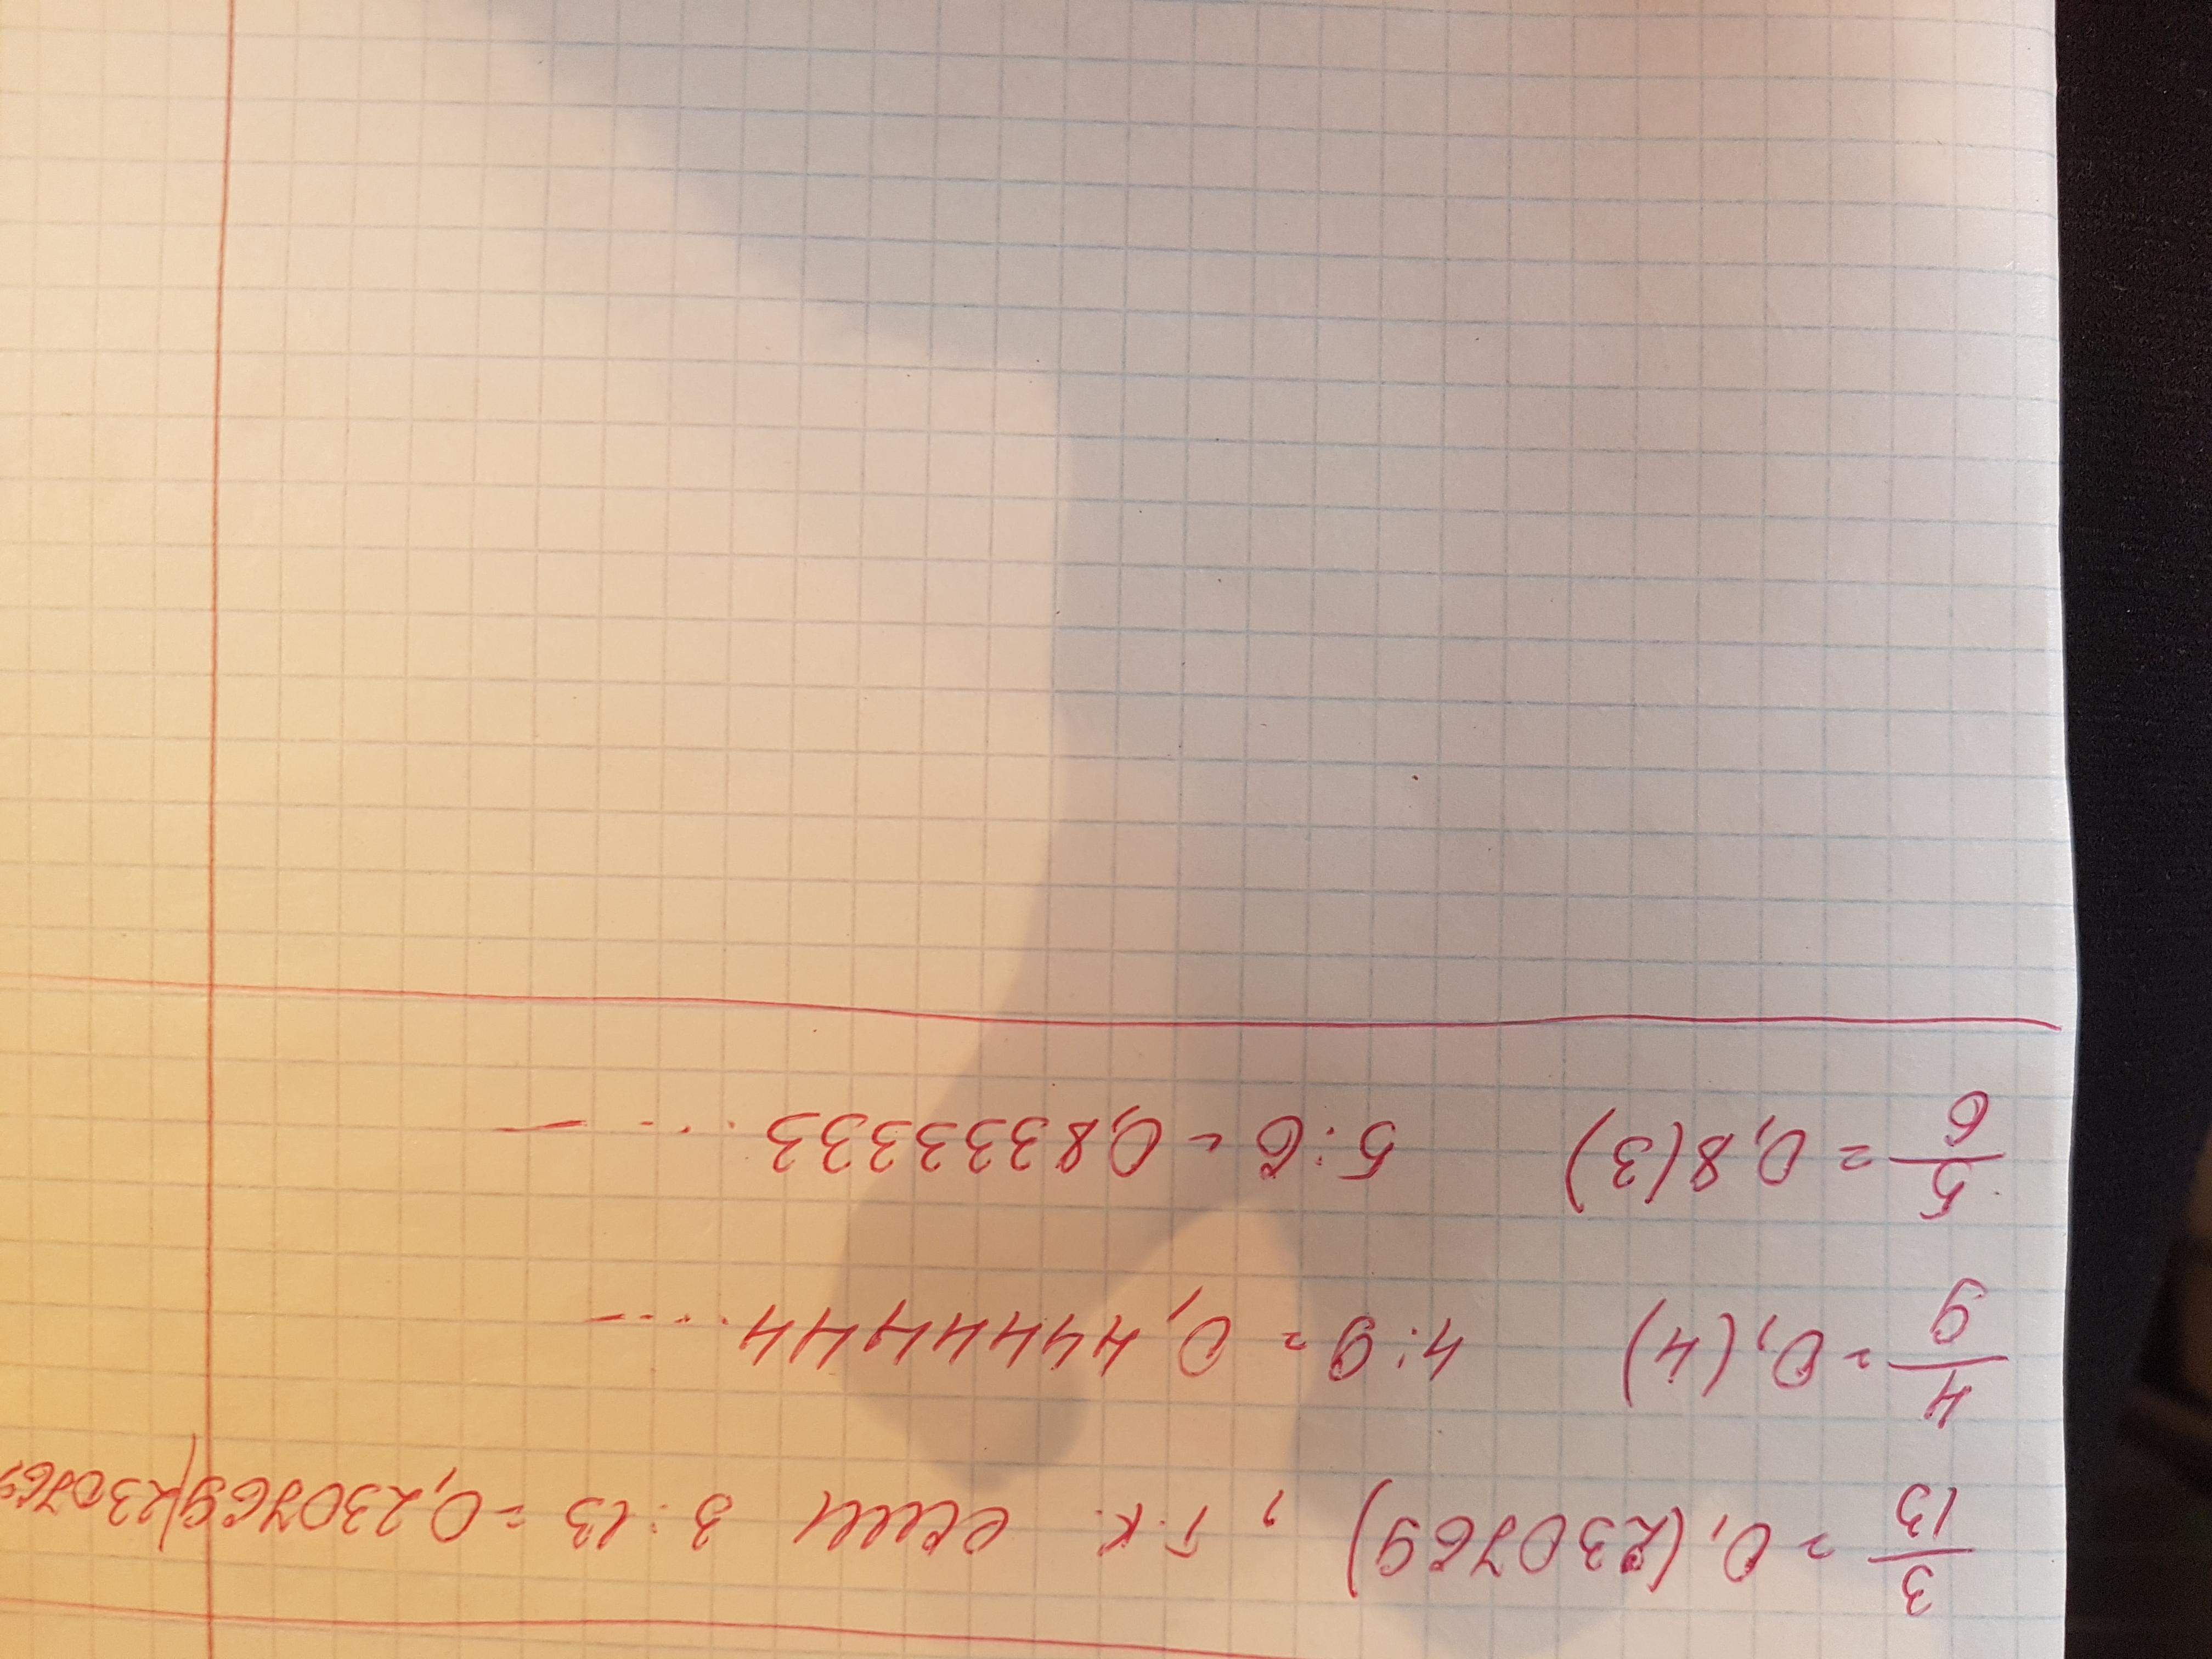 3/13 = 0,(230769), т.к. если 3:13 = 0,230769|230769
4/9 = 0,(4) 4:9 = 0,44444444.....—
5/6 = 0,8(3) 5:6 = 0,8333333.....—